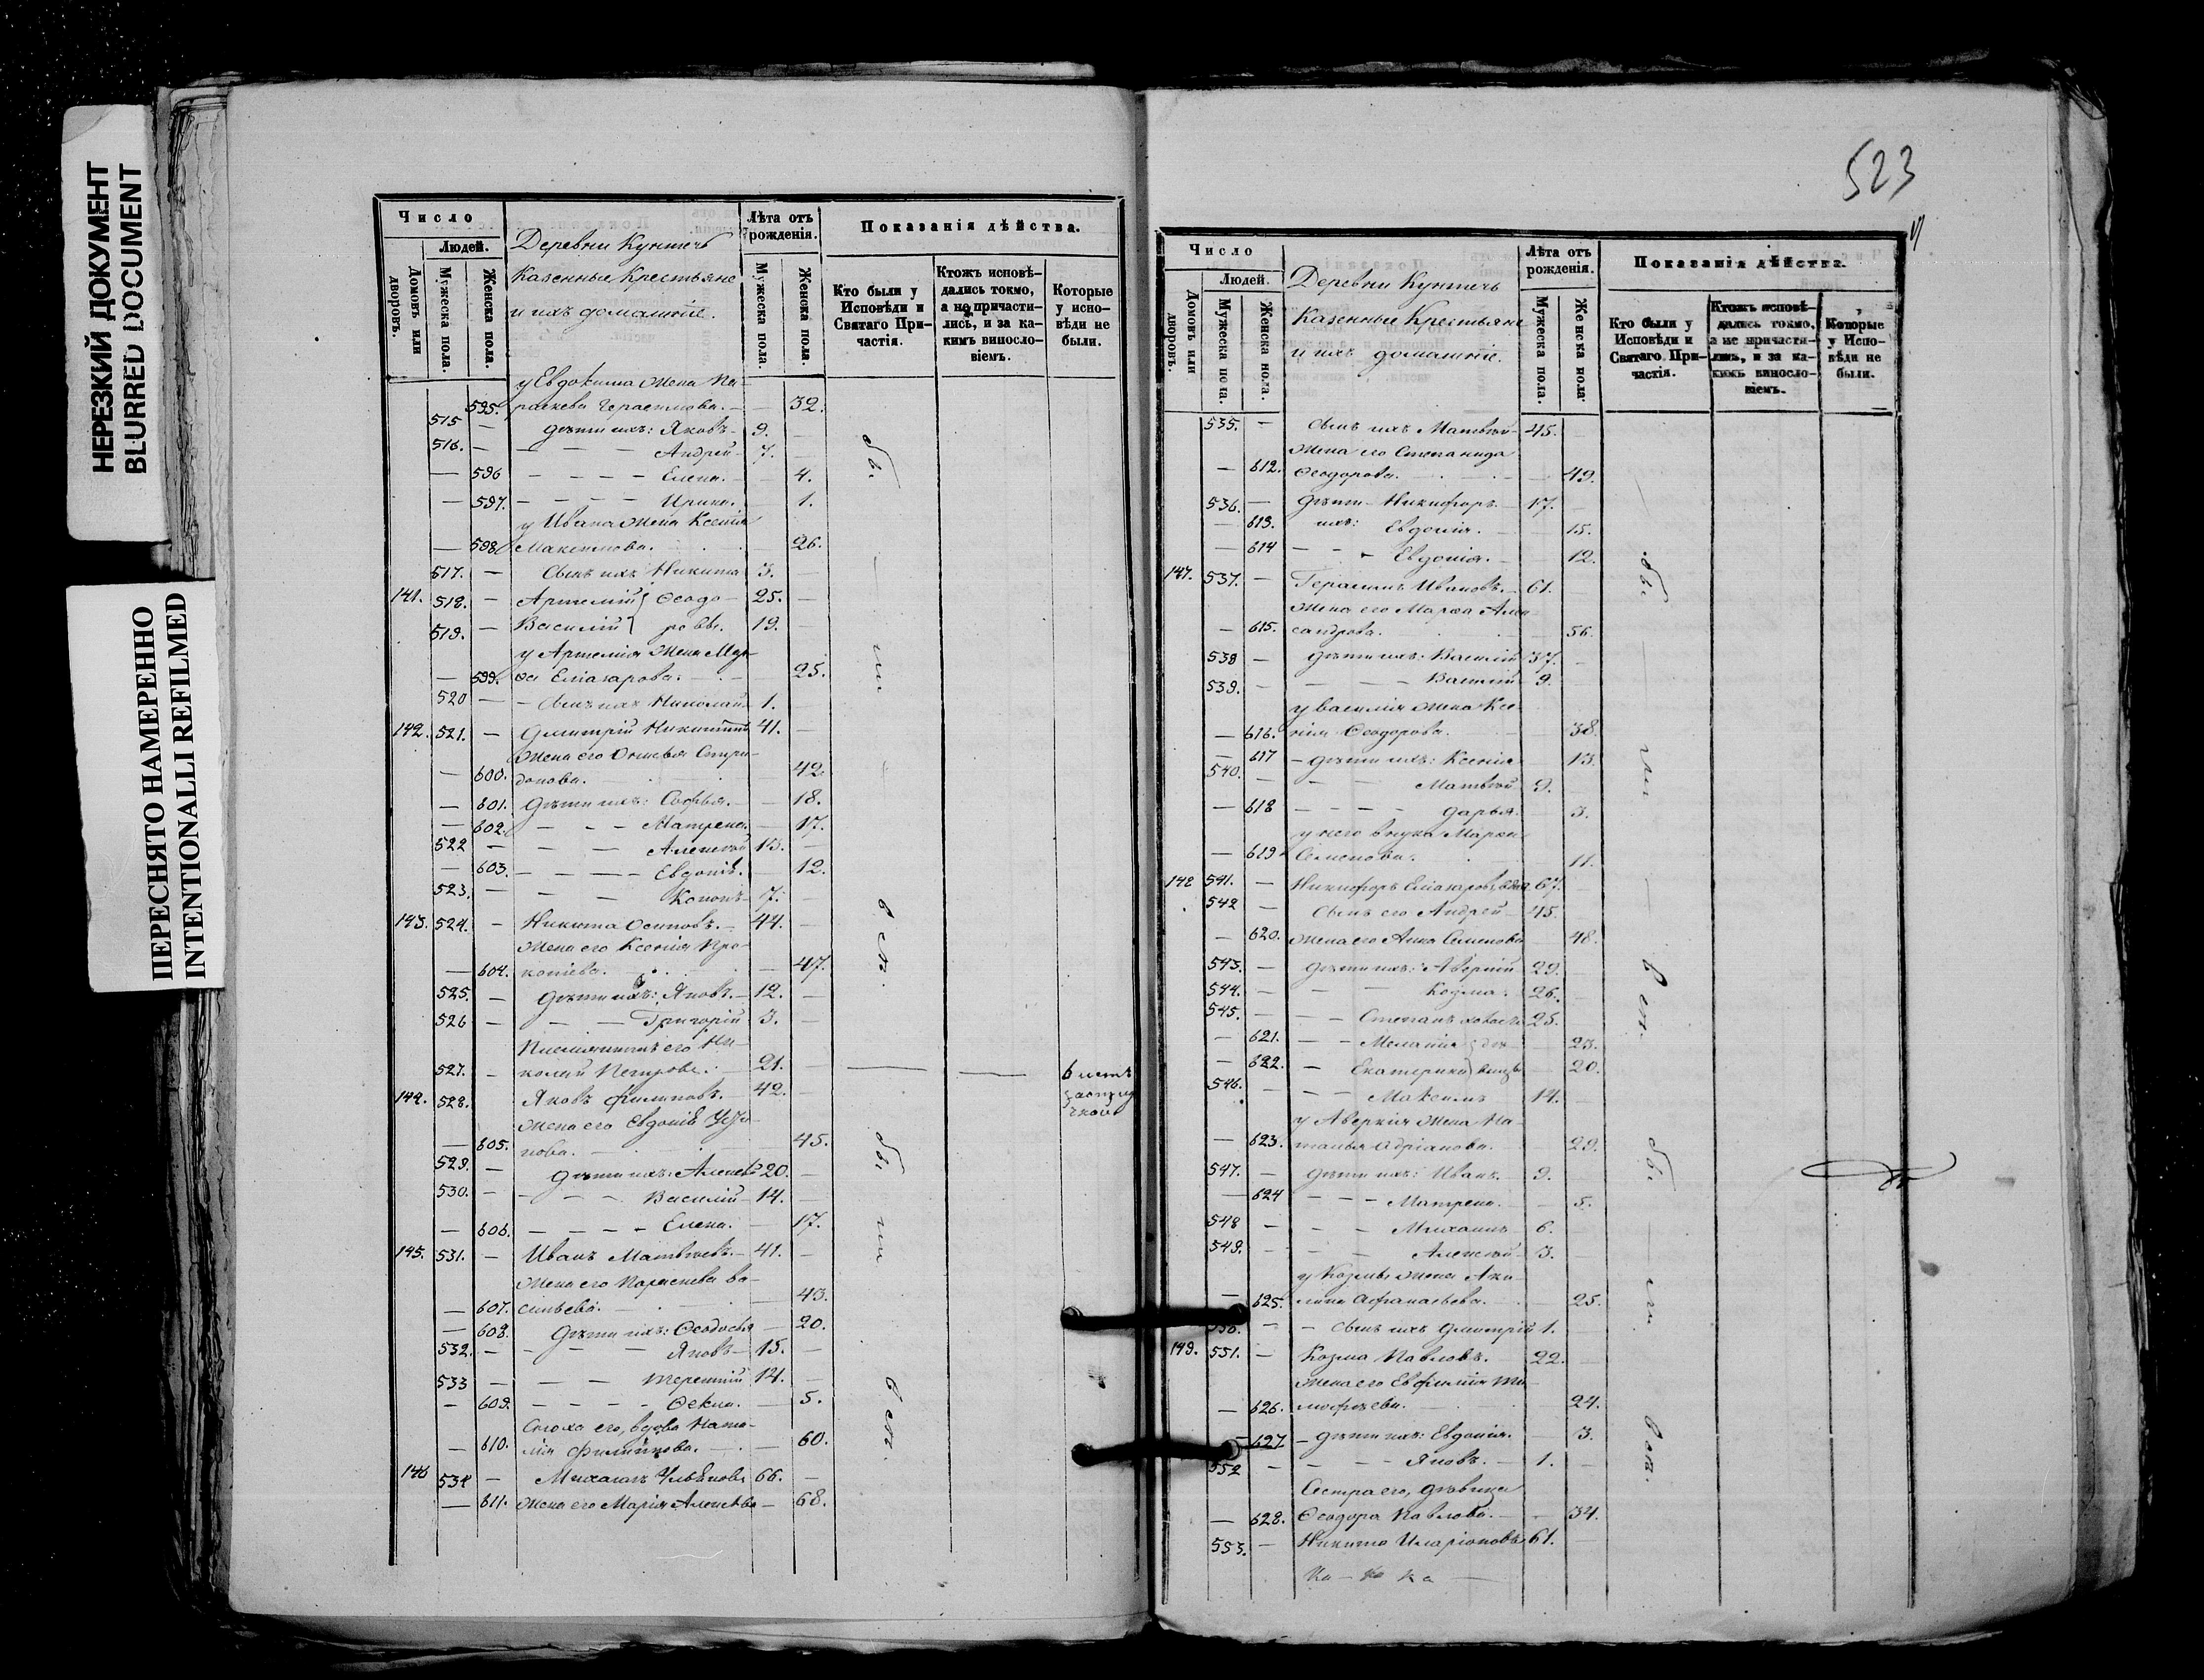 НЕРЕЗКИЙ ДОКУМЕНТ
BLURRED DOCUMENT
ПЕРЕСНЯТО НАМЕРЕННО
INTENTIONALLI REFILMED
Число
Людей.
Домовъ или дворовъ.
Мужеска пола.
Женска пола.
Деревни Кунтечь
Казенные Крестьяне
и ихъ домашніе.
Лѣта отъ рожденія.
Мужеска пола.
Женска пола.
Показанія дѣйства.
Кто были у Исповѣди и Святаго Причастія.
Ктожъ исповѣдались токмо, а не причастились, и за какимъ винословіемъ.
Которые у исповѣди не были.
у Евдокима жена Па-
595. раскева Герасимова. — 32.
515 — дѣти ихъ: Яковъ — 9.
516. — Андрей — 7.
— 596 Елена. — 4.
— 597. Ирина. 1.
у Ивана жена Ксенія
— 598 Максимова. 26.
517. — сынъ ихъ Никита 3. —
141. 518. — Артемій } Ѳеодо- 25. —
519. — Василій } ровы. 19. —
у Артемія жена Мар-
— 599. ѳа Елиазарова. 25.
520 — сынъ ихъ Николай 1.
142. 521. — Димитрій Никитинъ 41. —
жена его Спири-
— 600. донова. 42.
— 601. дѣти ихъ: Софья. — 18.
— 602. Матрена. — 17.
522 — Алексѣй 13. —
— 603. Евдокія. — 12.
523. — Кононъ — 7. —
143. 524. — Никита Осиповъ. — 44. —
жена его Ксенія Про-
— 604. копіева. — 47.
525. — дѣти ихъ: Яковъ. — 12. —
526 — Григорій 3. —
Племянникъ его Ни-
527. — колай Петровъ. 21.
144. 528. Яковъ Филиповъ. — 42. —
жена его Евдокія
— 605. нова. 45.
529. — дѣти ихъ: Алексѣй 20. —
530. — Василій — 14. —
— 606. Елена. — 17.
145. 531. — Иванъ Матвѣевъ. — 41. —
жена его Параскева Ва-
— 607. сильева. — 43.
— 608. дѣти ихъ: Ѳеодосья — 20.
532. — Яковъ — 15. —
533 — Терентій 14. —
— 609. Ѳекла. — 5.
Сноха его, вдова Ната-
— 610. лія Филипова. — 60.
146 534 — Михаилъ Ульяновъ 66. —
— 611. жена его Марія Алексѣева — 68.
бы
ли
всѣ.
бы
ли
всѣ.
523
Число
Людей.
Домовъ или дворовъ.
Мужеска пола.
Женска пола.
Деревни Кунтечь
Казенные Крестьяне
и ихъ домашніе.
Лѣта отъ рожденія.
Мужеска пола.
Женска пола.
Показанія дѣйства.
Кто были у Исповѣди и Святаго Причастія.
Ктожъ исповѣдались токмо, а не причастились, и за какимъ винословіемъ.
Которые у Исповѣди не были.
535. — сынъ ихъ Матвѣй — 45.
жена его Степанида
— 612. Ѳеодорова. — 49.
536. — дѣти — Никифоръ — 17.
— 613. ихъ: Евдокія. — 15.
— 614 Евдокія. — 12.
147. 537. — Герасимъ Ивановъ. — 61.
жена его Марѳа Алек-
— 615. сандрова. 56.
538 — дѣти ихъ: Василій 37.
539. — Василій 9.
у Василія жена Ксе-
— 616. нія Ѳеодорова. 38.
— 617 дѣти ихъ: Ксенія 13.
540. — Матвѣй 9.
— 618 Дарья. 3.
у него внука Марѳа
— 619 Семенова. 11.
148 541. — Никифоръ Елиазаровъ, вдов. 67.
542 — сынъ его Андрей — 45.
— 620. жена его Анна Семенова 48.
543. — дѣти ихъ: Аверкій 29.
544. — Козма. 26.
545. — Степанъ холостъ 25.
— 621. Меланія 23.
— 622. Екатерина 20.
546. — Максимъ 14.
у Аверкія жена На-
— 623. талья Адріанова. 29.
547. — дѣти ихъ: Иванъ. 9.
— 624 Матрена. — 5.
548 — Михаилъ — 6.
549. — Алексѣй — 3.
у Козмы жена Аку-
— 625. лина Афанасьева. 25.
550. — сынъ ихъ Димитрій 1.
149. 551. — Козма Павловъ. — 22.
жена его Евфимія Ти-
— 626. мофѣева. 24.
— 627 дѣти ихъ: Евдокія. — 3.
552 — Яковъ. — 1.
Сестра его, дѣвица
— 628. Ѳеодора Павлова. — 34.
553. — Никита Иларіоновъ 61.
бы
ли
всѣ.
бы
ли
всѣ.